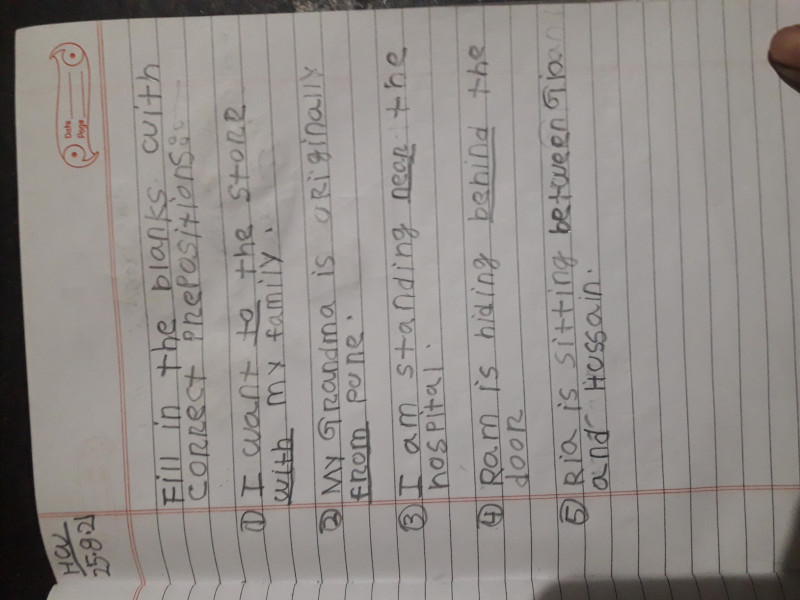 HW
25.8.21
Date
Page
Fill in the blanks with
correct prepositions:
① I want to the store
with my family.
② My Grandma is originally
from pune.
③ I am standing near the
hospital.
④ Ram is hiding behind the
door
⑤ Ria is sitting between
and Hussain.